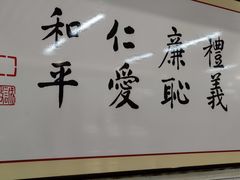 禮義
廉恥
仁愛
和平